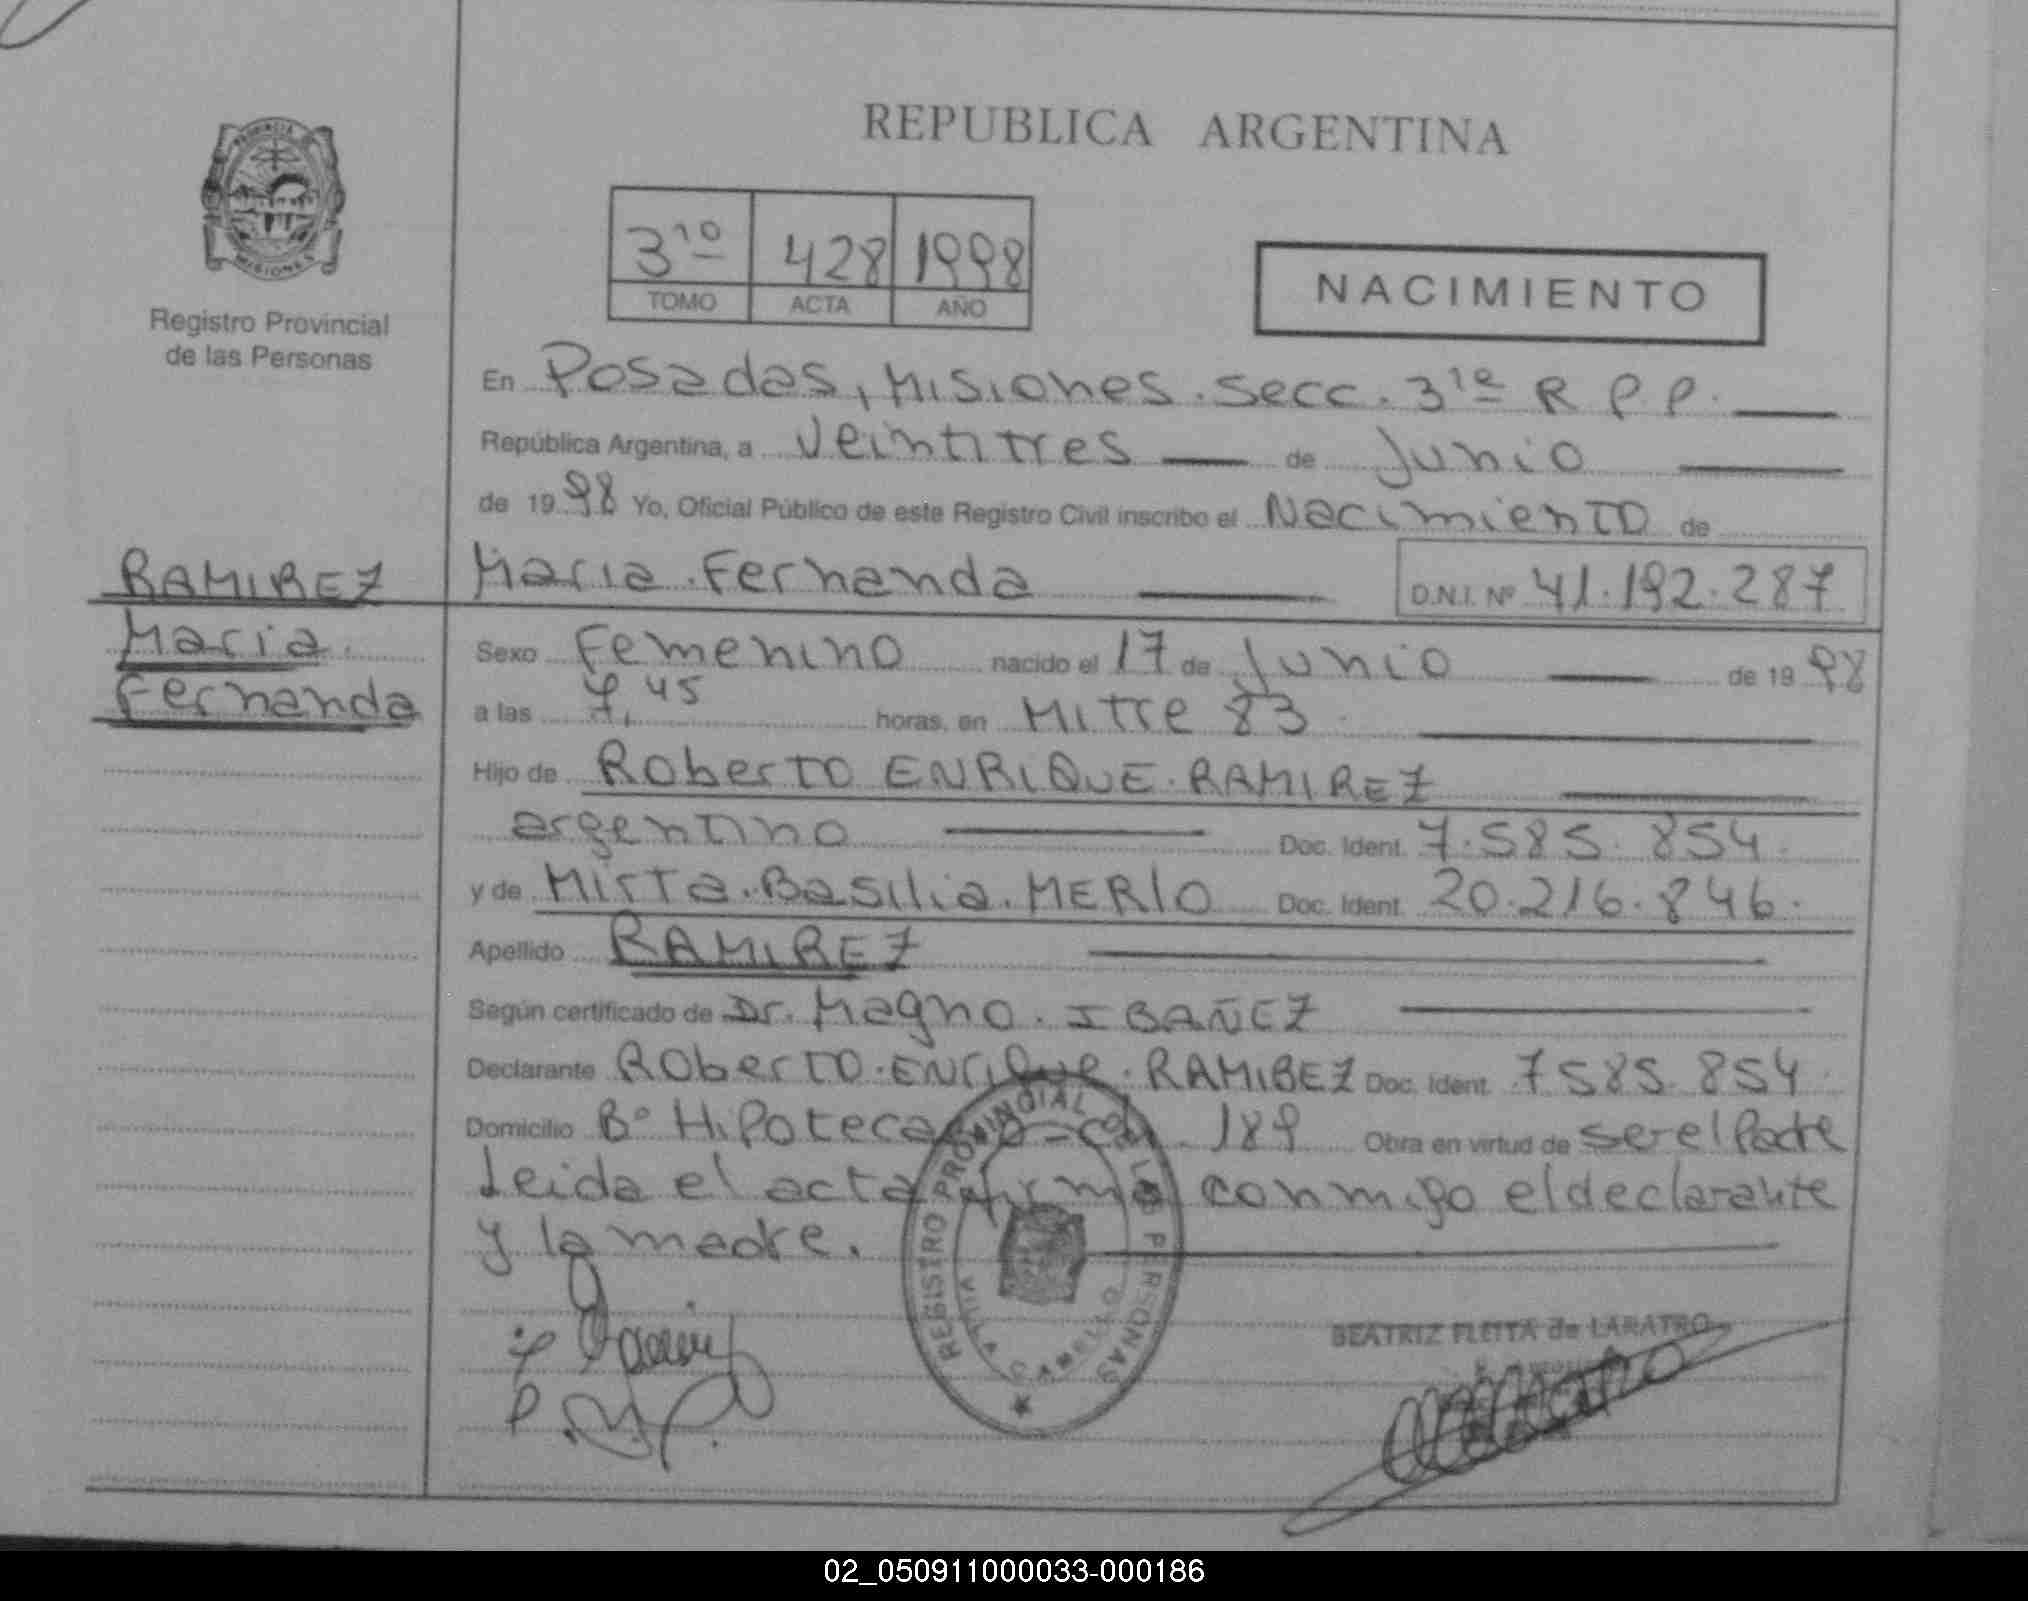 REPUBLICA ARGENTINA
PROVINCIA
MISIONES
Registro Provincial
de las Personas
3º 428 1998
TOMO ACTA AÑO
NACIMIENTO
En Posadas, Misiones. Secc. 3ª R P.P.
República Argentina, a Veintitres de Junio
de 1998 Yo, Oficial Público de este Registro Civil inscribo el Nacimiento de
Maria Fernanda D.N.I. Nº 41.192.287
RAMIREZ
Maria
Fernanda
Sexo Femenino nacido el 17 de Junio de 1998
a las 7,45 horas, en Mitre 83.
Hijo de Roberto ENRIQUE RAMIREZ
argentino Doc. Ident. 7.585.854.
y de Mirta Basilia MERLO Doc. Ident. 20.216.846.
Apellido RAMIREZ
Según certificado de Dr. Magno IBAÑEZ
Declarante Roberto Enrique RAMIREZ Doc. Ident. 7585.854
Domicilio Bº Hipotecario 189 Obra en virtud de ser el Padre
Leida el acta firma conmigo el declarante
y la madre.
REGISTRO PROVINCIAL DE LAS PERSONAS
VILLA CABELLO
BEATRIZ FLEITA de LARATRO
02_050911000033-000186